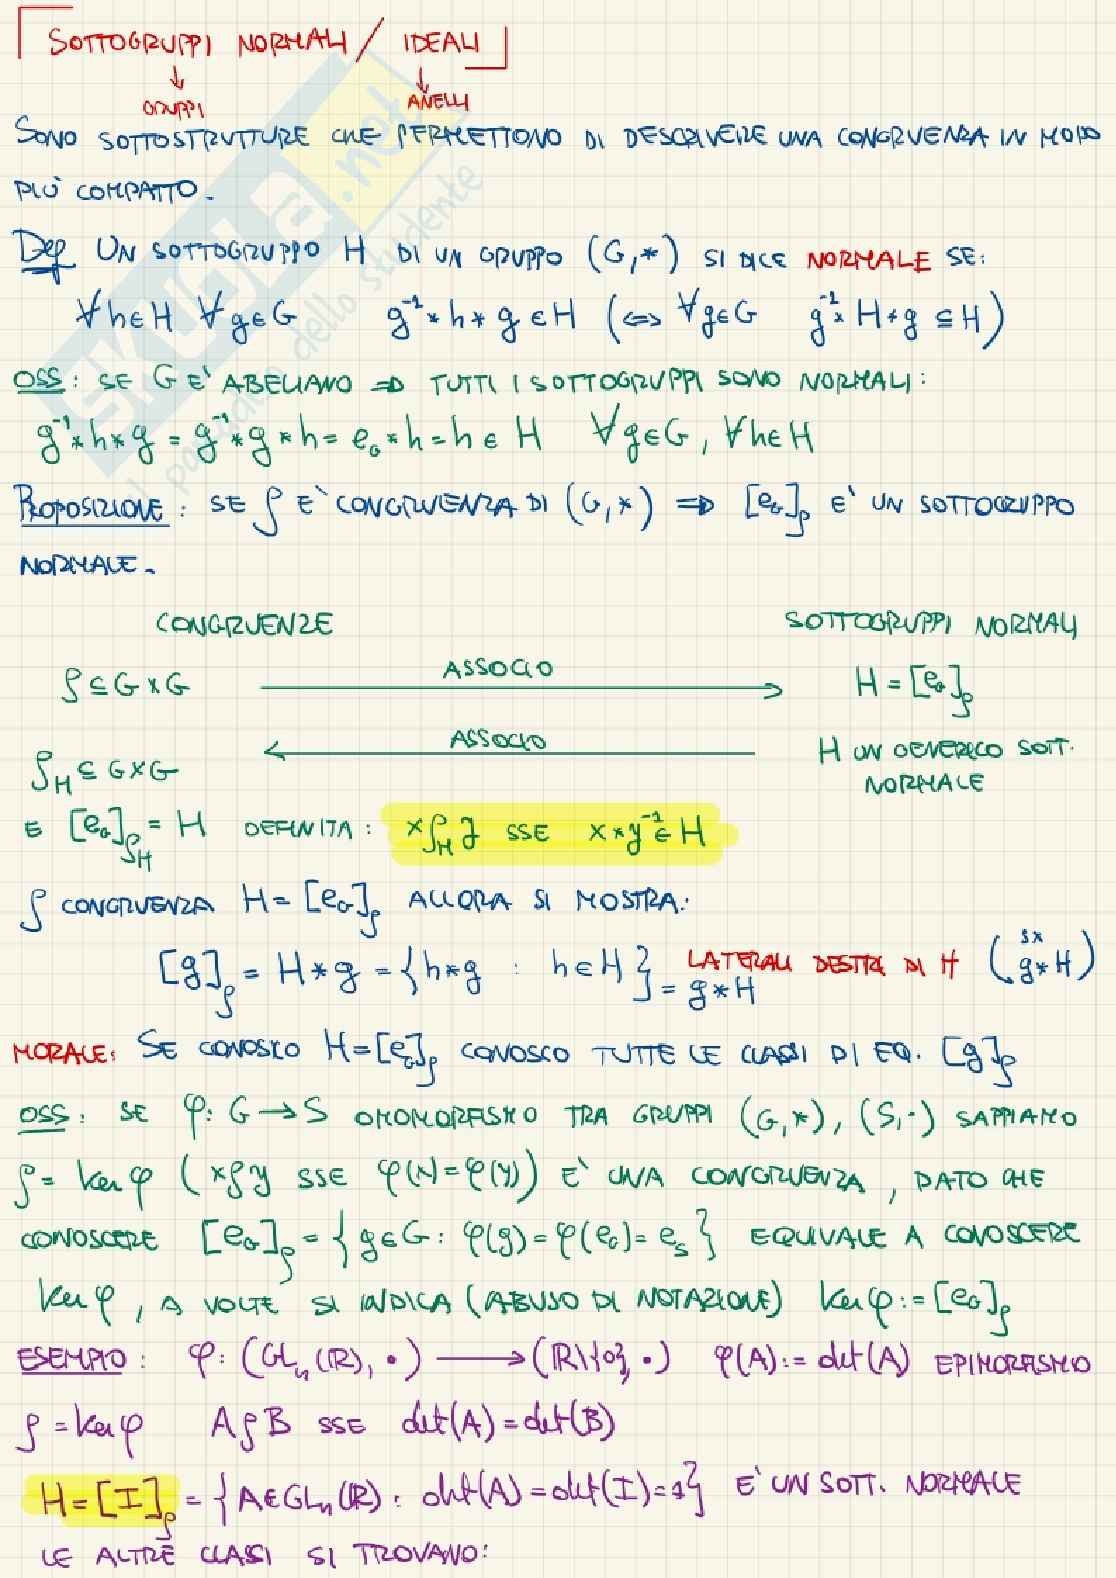 SOTTOGRUPPI NORMALI / IDEALI
↓ GRUPPI ↓ ANELLI
SONO SOTTOSTRUTTURE CHE PERMETTONO DI DESCRIVERE UNA CONGRUENZA IN MODO
PIÙ COMPATTO.
Def UN SOTTOGRUPPO H DI UN GRUPPO (G,*) SI DICE NORMALE SE:
∀h∈H ∀g∈G g⁻¹*h*g∈H (⇔ ∀g∈G g⁻¹*H*g ⊆ H)
OSS: SE G E' ABELIANO ⇒ TUTTI I SOTTOGRUPPI SONO NORMALI:
g⁻¹*h*g = g⁻¹*g*h = e_G*h = h ∈ H ∀g∈G, ∀h∈H
PROPOSIZIONE: SE ρ E' CONGRUENZA DI (G,*) ⇒ [e_G]_ρ E' UN SOTTOGRUPPO
NORMALE.
CONGRUENZE SOTTOGRUPPI NORMALI
ρ ⊆ G×G ASSOCIO → H = [e_G]_ρ
ρ_H ⊆ G×G ← ASSOCIO H UN GENERICO SOTT.
NORMALE
E [e_G]_ρ_H = H DEFINITA: xρ_H y SSE x*y⁻¹∈H
ρ CONGRUENZA H = [e_G]_ρ ALLORA SI MOSTRA:
[g]_ρ = H*g = {h*g : h∈H} = g*H LATERALI DESTRI DI H (sx g*H)
MORALE: SE CONOSCO H=[e_G]_ρ CONOSCO TUTTE LE CLASSI DI EQ. [g]_ρ
OSS: SE φ: G→S OMOMORFISMO TRA GRUPPI (G,*), (S,·) SAPPIAMO
ρ = ker φ (xρy SSE φ(x)=φ(y)) E' UNA CONGRUENZA, DATO CHE
CONOSCERE [e_G]_ρ = {g∈G: φ(g)=φ(e_G)=e_S} EQUIVALE A CONOSCERE
ker φ, A VOLTE SI INDICA (ABUSO DI NOTAZIONE) ker φ := [e_G]_ρ
ESEMPIO: φ: (GL_n(ℝ), ·) → (ℝ\{0}, ·) φ(A):= det(A) EPIMORFISMO
ρ = ker φ AρB SSE det(A)=det(B)
H=[I]_ρ = {A∈GL_n(ℝ): det(A)=det(I)=1} E' UN SOTT. NORMALE
LE ALTRE CLASSI SI TROVANO:
SKUOLA.net
il paradiso dello studente